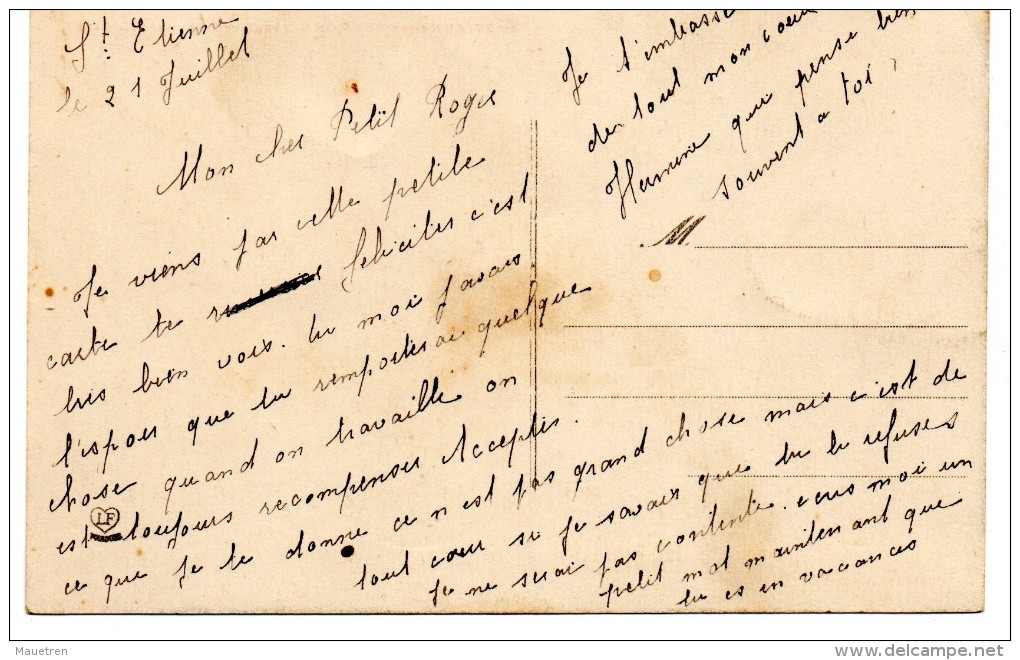 St. Etienne
le 21 Juillet
Mon cher Petit Roger
Je viens par cette petite
carte te feliciter c'est
tres bien vois. tu moi javais
l'espoir que tu remporterai quelque
chose quand on travaille on
est toujours recompenser. Acceptes.
ce que je te donne ce n'est pas grand chose mais c'est de
tout cœur si je savais que tu le refuses
Je ne serai pas contente. ecris moi un
petit mot maintenant que
tu es en vacances
Je t'embasse
de tout mon coeur
Hermine qui pense bien
souvent a toi
M
LF
Mauetren
www.delcampe.net